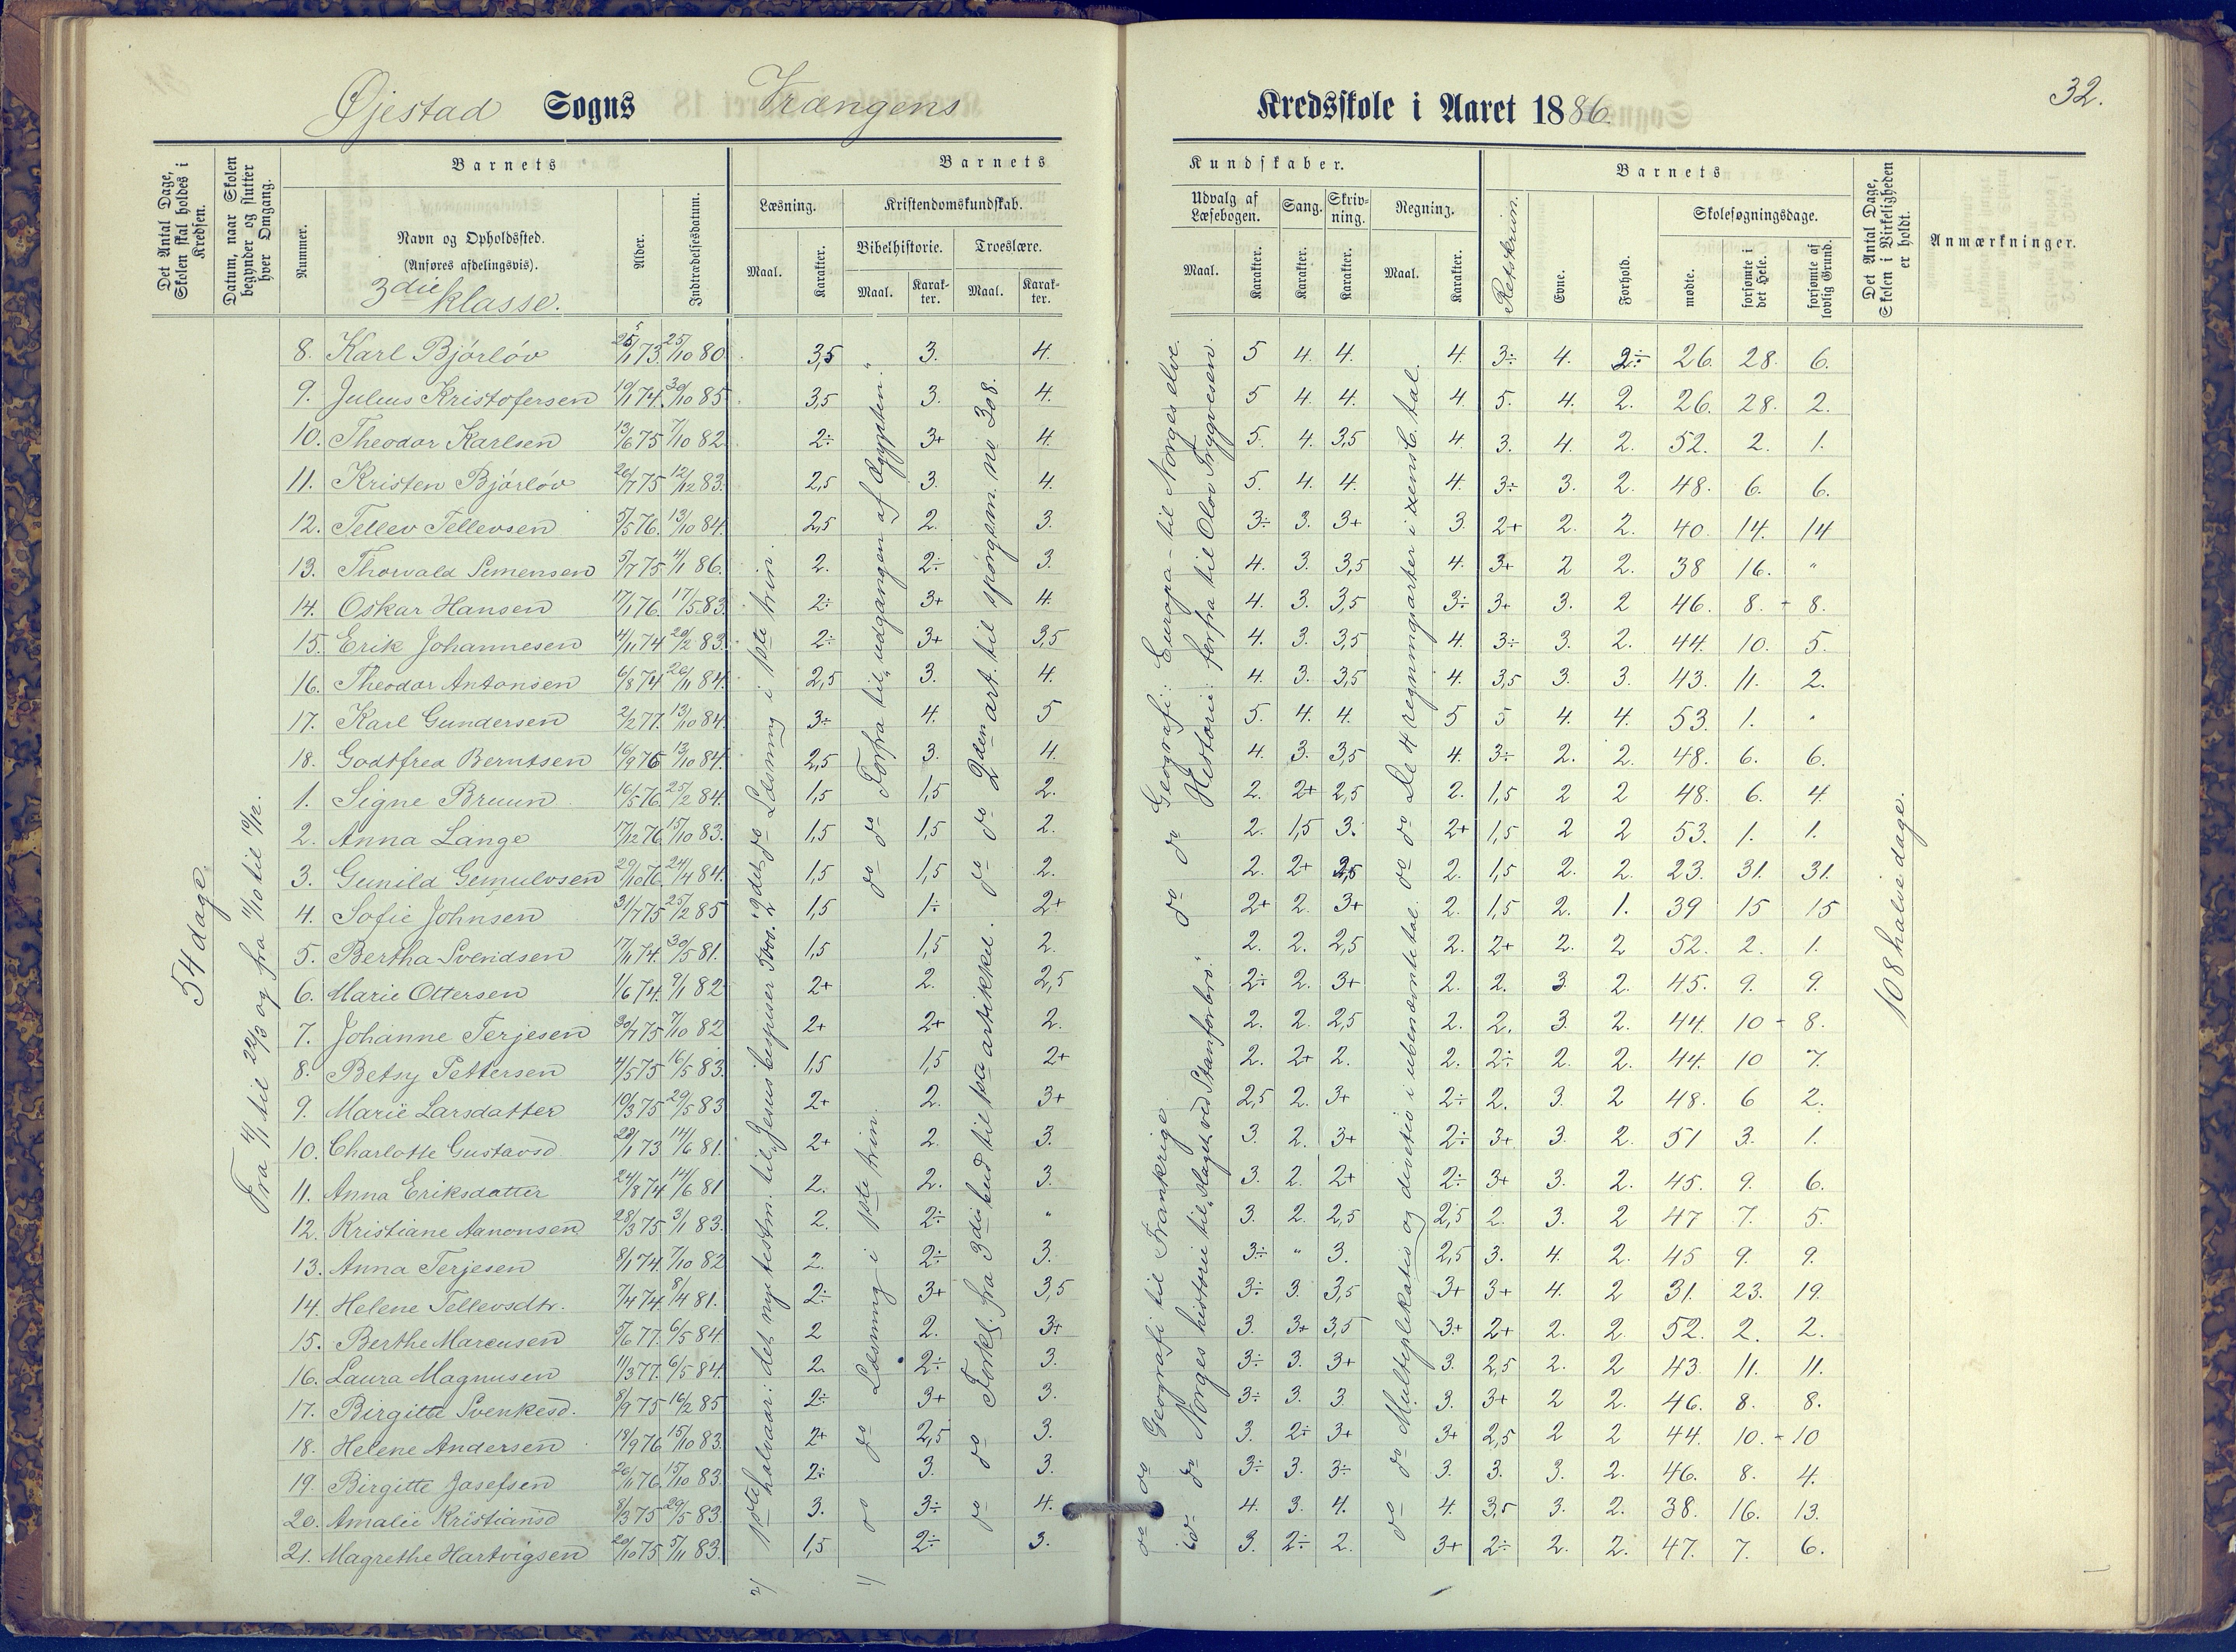 32.
Øjestad Sogns Vrængens Kredsskole i Aaret 1886.
Det Antal Dage, Skolen skal holdes i Kredsen.
Datum, naar Skolen begynder og slutter hver Omgang.
Barnets
Nummer.
Navn og Opholdssted.
(Anføres afdelingsvis).
3die klasse.
Alder.
Indtrædelsesdatum.
Barnets Kundskaber.
Læsning.
Maal.
Karakter.
Kristendomskundskab.
Bibelhistorie.
Maal.
Karakter.
Troeslære.
Maal.
Karakter.
Udvalg af Læsebogen.
Maal.
Karakter.
Sang.
Karakter.
Skrivning.
Karakter.
Regning.
Maal.
Karakter.
Retskrivn.
Barnets
Evne.
Forhold.
Skolesøgningsdage.
mødte.
forsømte i det Hele.
forsømte af lovlig Grund.
Det Antal Dage, Skolen i Virkeligheden er holdt.
Anmærkninger.
54 dage.
Fra 4/1 til 22/3 og fra 11/10 til 10/12.
8. Karl Bjórlóv 25/1 73. 25/10 80. 3,5 3. 4. 5 4. 4. 4. 3÷ 4. 2÷ 26. 28. 6.
9. Julius Kristofersen 19/1 74. 30/10 85. 3,5 3. 4. 5 4. 4. 4. 5. 4. 2. 26. 28. 2.
10. Theodor Karlsen 13/6 75 7/10 82 2÷ 3+ 4. 5. 4. 3,5 4 3. 4. 2. 52. 2. 1.
11. Kristen Bjórlóv 26/7 75 12/12 83. 2,5 3. 4. 5. 4. 4. 4. 3÷ 3. 2. 48. 6. 6.
12. Tellev Tellevsen 5/5 76. 13/10 84. 2,5 2. 3. 3÷ 3. 3+ 3. 2+ 2. 2. 40. 14. 14
13. Thorvald Simensen 5/7 75 4/1 86. 2. 2÷ 3. 4. 3. 3,5 4. 3+ 2 2. 38 16. "
14. Oskar Hansen 17/1 76. 17/5 83. 2÷ 3+ 4. 4. 3. 3,5 3÷ 3+ 3. 2 46. 8. - 8.
15. Erik Johannesen 4/11 74 20/2 83. 2÷ 3+ 3,5 4. 3. 3,5 4. 3÷ 3. 2. 44. 10. 5.
16. Theodor Antonsen 6/8 74 26/11 84. 2,5 3. 4. 4. 3. 3,5 4. 3,5 3. 3. 43. 11. 2.
17. Karl Gundersen 2/2 77. 13/10 84. 3÷ 4. 5 5. 4. 4. 5 5 4. 4. 53. 1. "
18. Godtfred Berntsen 16/9 76 13/10 84. 2,5 3. 4. 4. 3. 3,5 4. 3÷ 2. 2. 48. 6. 6.
1. Signe Bruun 16/5 76. 25/2 84. 1,5 1,5 2. 2. 2+ 2,5 2. 1,5 2 2 48. 6. 4.
2. Anna Lange 17/12 76 15/10 83. 1,5 1,5 2. 2. 1,5 3. 2+ 1,5 2 2 53. 1. 1.
3. Gunild Gemulvsen 29/10 76. 24/4 84. 1,5 1,5 2. 2. 2+ 2,5 2. 1,5 2. 2. 23. 31. 31.
4. Sofie Johnsen 31/7 75 25/2 85 1,5 1÷ 2+ 2+ 2. 3+ 2. 1,5 2. 1. 39 15 15
5. Bertha Svendsen 17/11 74. 30/5 81. 1,5 1,5 2. 2. 2. 2,5 2. 2+ 2. 2 52. 2. 1.
6. Marie Ottersen 1/6 74. 9/1 82 2+ 2. 2,5 2÷ 2. 3+ 2. 2. 3 2. 45. 9. 9.
7. Johanne Terjesen 30/7 75 7/10 82 2+ 2+ 2. 2. 2. 2,5 2. 2. 3. 2. 44. 10 - 8.
8. Betsy Pettersen 4/5 75 16/5 83. 1,5 1,5 2+ 2. 2+ 2. 2. 2÷ 2. 2. 44. 10 7.
9. Marie Larsdatter 10/3 75 29/5 83 2+ 2. 3+ 2,5 2. 3+ 2÷ 2. 3. 2 48. 6 2.
10. Charlotte Gustavsd. 28/1 73 14/6 81. 2+ 2. 3. 3. 2. 3+ 2÷ 3+ 3. 2. 51 3. 1.
11. Anna Eriksdatter 24/8 74 14/6 81 2. 2. 3. 3. 2. 2+ 2÷ 3+ 3. 2. 45. 9. 6.
12. Kristiane Aanonsen 28/3 75 3/1 83. 2. 2÷ " 3. 2. 2,5 2,5 2. 3. 2 47 7. 5.
13. Anna Terjesen 8/1 74. 7/10 82 2. 2÷ 3. 3÷ " 3. 2,5 3. 4. 2. 45 9. 9.
14. Helene Tellevsdtr. 7/4 74. 8/4 81. 2÷ 3+ 3,5 3÷ 3. 3,5 3+ 3+ 4. 2 31. 23. 19.
15. Berthe Marcusen 5/6 77. 6/5 84 2 2. 3+ 3. 3+ 3,5 3+ 2+ 2. 2. 52. 2. 2.
16. Laura Magnusen 11/3 77. 6/5 84. 2. 2÷ 3. 3÷ 3. 3+ 3. 2,5 2. 2 43. 11. 11.
17. Birgitte Svenkesd. 8/9 75 16/2 85 2÷ 3+ 3. 3÷ 3. 3 3. 3+ 2 2. 46. 8. 8.
18. Helene Andersen 18/9 76 15/10 83. 2+ 2,5 3. 3. 2÷ 3+ 3+ 2,5 2 2 44. 10. - 10
19. Birgitte Josefsen 26/11 76. 15/10 83. 2÷ 3. 3. 3÷ 3. 3÷ 3. 3. 3. 2. 46. 8. 4.
20. Amalie Kristiansd 8/3 75 29/5 83. 3. 3÷ 4. 4. 3. 4. 4. 3,5 3. 2. 38. 16. 13.
21. Magrethe Hartvigsen 20/10 75 5/11 83. 1,5 2÷ 3. 3. 2÷ 2. 3+ 2÷ 2. 2. 47. 7. 6.
1ste halvaar: det nye testm. til "Jesus bespiser 5000." 2det do Læsning i 1ste trin.
do do Læsning i 1ste trin. do do Forfra til "udgangen af Ægypten".
do do Forkl. fra 3die bud til 1ste artikkel. do do 2den art. til spórgsm. no 308.
do do Geografi til Frankrige. do do Geografi: Europa - til Norges elve.
do do Norges historie til "slaget ved Stamforbro". Historie: forfra til Olov Trygvesen.
do do Multiplikatio og divitio i ubenævnte tal. do do De 4 regningsarter i tal.
108 halve dage.
2/
1/